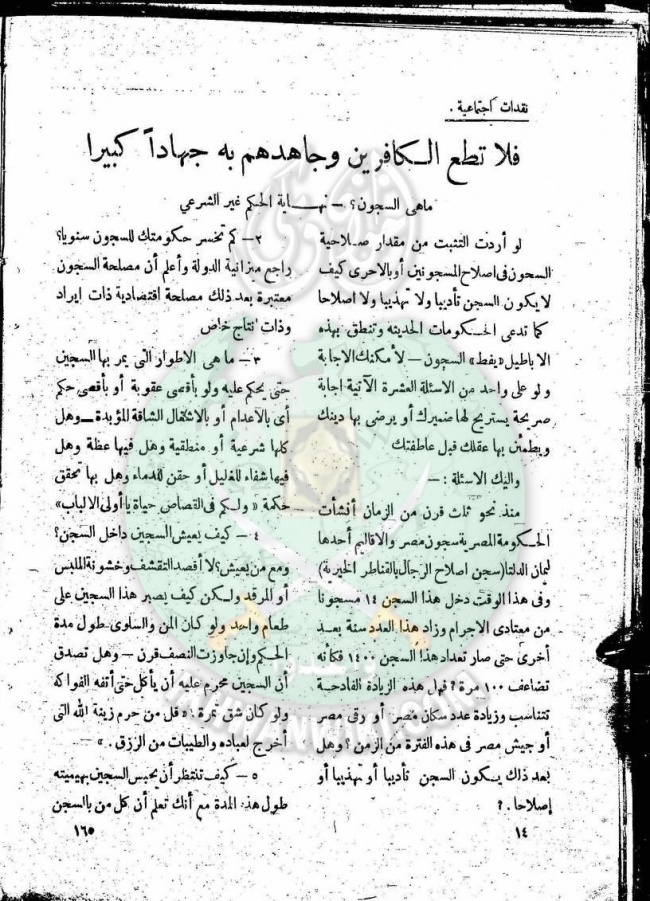 نقدات اجتماعية .
فلا تطع الكافرين وجاهدهم به جهاداً كبيرا
ماهى السجون؟ – نهاية الحكم غير الشرعي
لو أردت التثبت من مقدار صلاحية
السجون فى اصلاح المسجونين أو بالاحرى كيف
لا يكون السجن تأديبا ولا تهذيبا ولا اصلاحا
كما تدعى الحكومات الحديثه وتنطق بهذه
الاباطيل «يفط» السجون – لأمكنك الاجابة
ولو على واحد من الاسئلة العشرة الآتية اجابة
صريحة يستريح لها ضميرك أو يرضى بها دينك
ويطمئن بها عقلك قبل عاطفتك
واليك الاسئلة : –
منذ نحو ثلث قرن من الزمان أنشأت
الحكومة المصرية سجون مصر والاقاليم أحدها
ليمان الدلتا (سجن اصلاح الرجال بالقناطر الخيرية)
وفى هذا الوقت دخل هذا السجن ١٤ مسجونا
من معتادى الاجرام وزاد هذا العدد سنة بعد
أخرى حتى صار تعداد هذا السجن ١٤٠٠ فكأنه
تضاعف ١٠٠ مرة ؟ فهل هذه الزيادة الفادحة
تتناسب وزيادة عدد سكان مصر أو رقى مصر
أو جيش مصر فى هذه الفترة من الزمن ؟ وهل
بعد ذلك يكون السجن تأديبا أو تهذيبا أو
إصلاحا . ؟
٢ – كم تخسر حكومتك للسجون سنويا؟
راجع ميزانية الدولة وأعلم أن مصلحة السجون
معتبرة بعد ذلك مصلحة اقتصادية ذات إيراد
وذات انتاج خاص
٣ – ما هى الاطوار التى يمر بها السجين
حتى يحكم عليه ولو بأقصى عقوبة أو بأقصى حكم
أى بالاعدام أو بالاشغال الشاقة المؤبدة – وهل
كلها شرعية أو منطقية وهل فيها عظة وهل
فيها شفاء للغليل أو حقن للدماء وهل بها تحقق
حكمة « ولكم فى القصاص حياة يا أولى الالباب»
٤ – كيف يعيش السجين داخل السجن؟
ومع من يعيش؟ لا أقصد التقشف وخشونة الملبس
أو المرقد ولكن كيف يصبر هذا السجين على
طعام واحد ولو كان المن والسلوى طول مدة
الحكم وإن جاوزت النصف قرن – وهل تصدق
أن السجين محرم عليه أن يأكل حتى أتفه الفواكه
ولو كان شق تمرة : «قل من حرم زينة الله التى
أخرج لعباده والطيبات من الرزق . »
٥ – كيف تنتظر أن يحبس السجين بهيميته
طول هذه المدة مع أنك تعلم أن كل من بالسجن
١٤
١٦٥